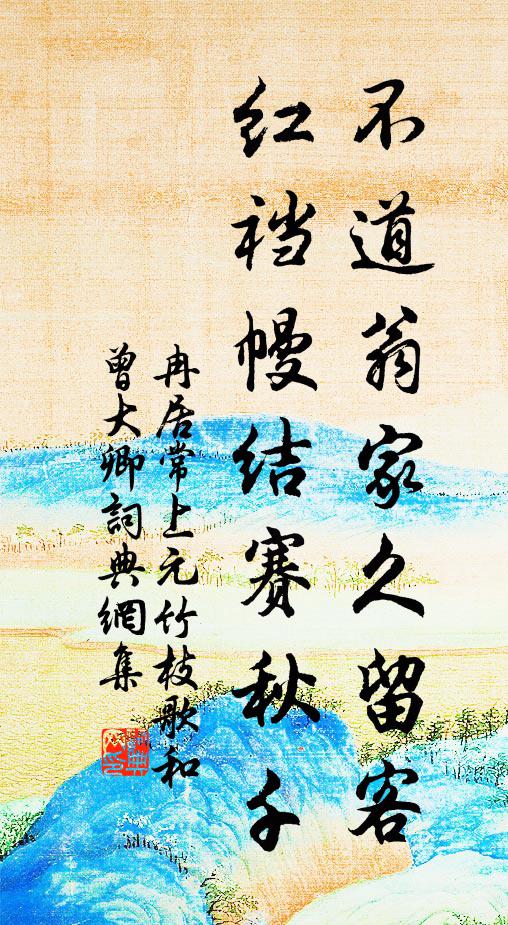 不道翁家久留客
红裆幔结赛秋千
冉居常上元竹枝歌和
曾大卿詞典網集